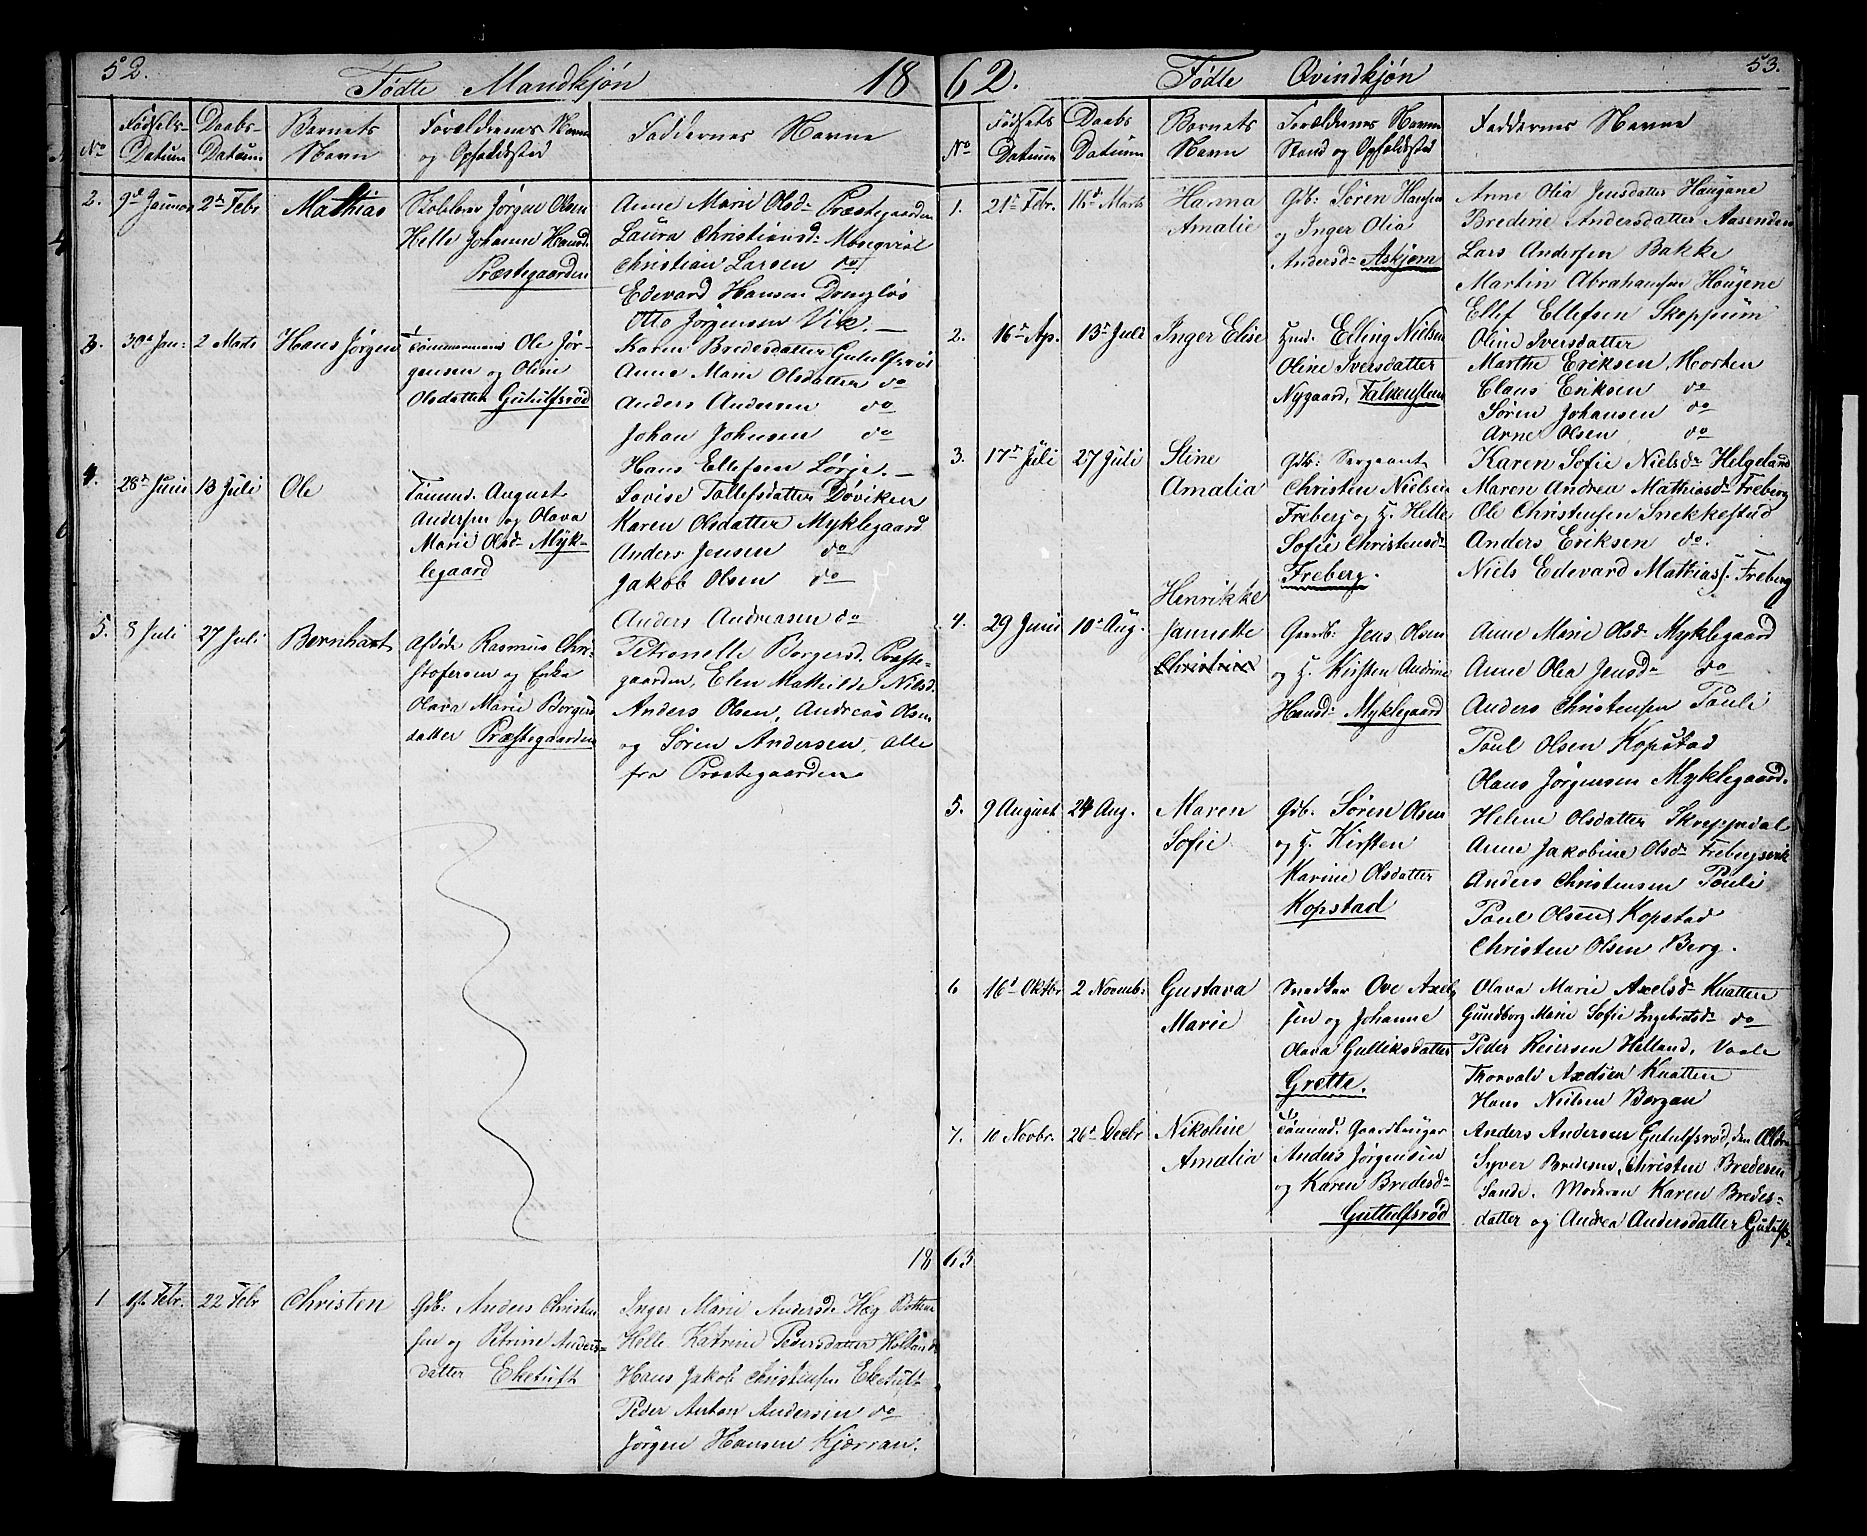 52.
Fødte Mandkjøn 18
No
Fødsels-
Datum
Daabs-
Datum
Barnets
Navn
Forældrenes Navn
og Opholdssted
Faddernes Navne
2. 9d Januar 2den Febr Mathias
Jørgen Olsen
Helle Johanne Hansd.
Præstegaarden
Anne Marie Olsd. Præstegaarden
Laura Christiansd:
Christian Larsen do
Edevard Hansen
Otto Jørgensen Vik. —
3. 30d Jan: 2 Marts Hans Jørgen
Tømmermand Ole Jør-
gensen og Oline
Olsdatter Gutulfsrød
Karen Bredesdatter Gutulfsrød
Anne Marie Olsdatter do
Anders Andersen do
Johan Johnsen do
Hans Ellefsen Lørje. —
4. 28d Juni 13 Juli Ole
Tømmd. August
Andersen og Olava
Marie Olsd. Myk-
legaard
Lovise Tollefsdatter Døviken
Karen Olsdatter Myklegaard
Anders Jensen do
Jakob Olsen do
Anders Andreasen do
5. 8 Juli 27 Juli Bernhart
afdøde Rasmus Chri-
stofersen og Enke
Olava Marie Borgers
datter Præstegaarden
Petronelle Borgersd. Præste-
gaarden, Elen Mathilde Nilsd.
Anders Olsen, Andreas Olsen
og Søren Andersen, alle
fra Præstegaarden
18
1 22 Febr Christen
Gdb: Anders Christen
sen og Petrine Anders-
datter Eketuft
Inger Marie Andersd.
Helle Katrine Pedersdatter
Hans Jakob Christensen Eketuft
Peder Anton Andersen do
Jørgen Hansen Kjærran.
62. Fødte Qvindkjøn 53.
No
Fødsels
Datum
Daabs
Datum
Barnets
Navn
Forældrenes Navne
Stand og Opholdssted
Faddernes Navne
1. 21de Febr. 16de Marts Hanna
Amalie
Gdb: Søren Hansen
og Inger Olia
Andersd. Askjem
Anne Olia Jensdatter Haugane
Bredine Andersdatter Aasenden
Lars Andersen Bakke
Martin Abrahamsen Haugene
Ellef Ellefsen Skopsum
2. 16de Ap. 13de Juli Inger Elise
Hmd. Elling Nielsen
Oline Iversdatter
Nygaard, Falkensteen
Oline Iversdatter
Marthe Eriksen, Horten
Claus Eriksen do
Søren Johansen do
Arne Olsen do
3. 17de Juli 27 Juli Stine
Amalia
Gdb: Sergeant
Christen Nielsen
Freberg og H. Helle
Sofie Christensd.
Freberg.
Karen Sofie Nielsd. Helgeland
Maren Andrea Mathiasd. Freberg
Ole Christensen Snekkestad
Anders Eriksen do.
Niels Edevard Mathiass. Freberg
4. 29 Juni 10d Aug. Henrikke
Jannette
Christine
Gaardb. Jens Olsen
og H. Kirsten Andrine
Hansd. Myklegaard
Anne Marie Olsd. Myklegaard
Anne Olea Jensd. do
Anders Christensen Pauli
Paul Olsen Kopstad
Olaus Jørgensen Myklegaard.
5. 9 August 24 Aug. Maren
Sofie
Gdb. Søren Olsen
og H. Kirsten
Karine Olsdatter
Kopstad
Helene Olsdatter Skreppedal
Anne Jakobine Olsd. Frebergsvik
Anders Christensen Pauli
Paul Olsen Kopstad
Christen Olsen Berg.
6 16d Oktbr 2 Novemb: Gustava
Marie
Snedker Ove Axel
sen og Johanne
Olava Gulliksdatter
Grette.
Olava Marie Axelsd. Knatten
Gundborg Marie Sofie Ingebretsd. do
Peder Reiersen Helland, Vaale
Thorvald Axelsen Knatten
Hans Nielsen Borgen
7. 10 Novbr. 26d Decbr Nikoline
Amalia
Tømmd. Gaardbruger
Anders Jørgensen
og Karen Bredesd.
Guttulfsrød
Anders Andersen Gutulfsrød, den Ældre
Syver Bredesen, Christen Bredesen
Sande. Moderen Karen Bredes-
datter og Andrea Andersdatter Gutulfs-
63